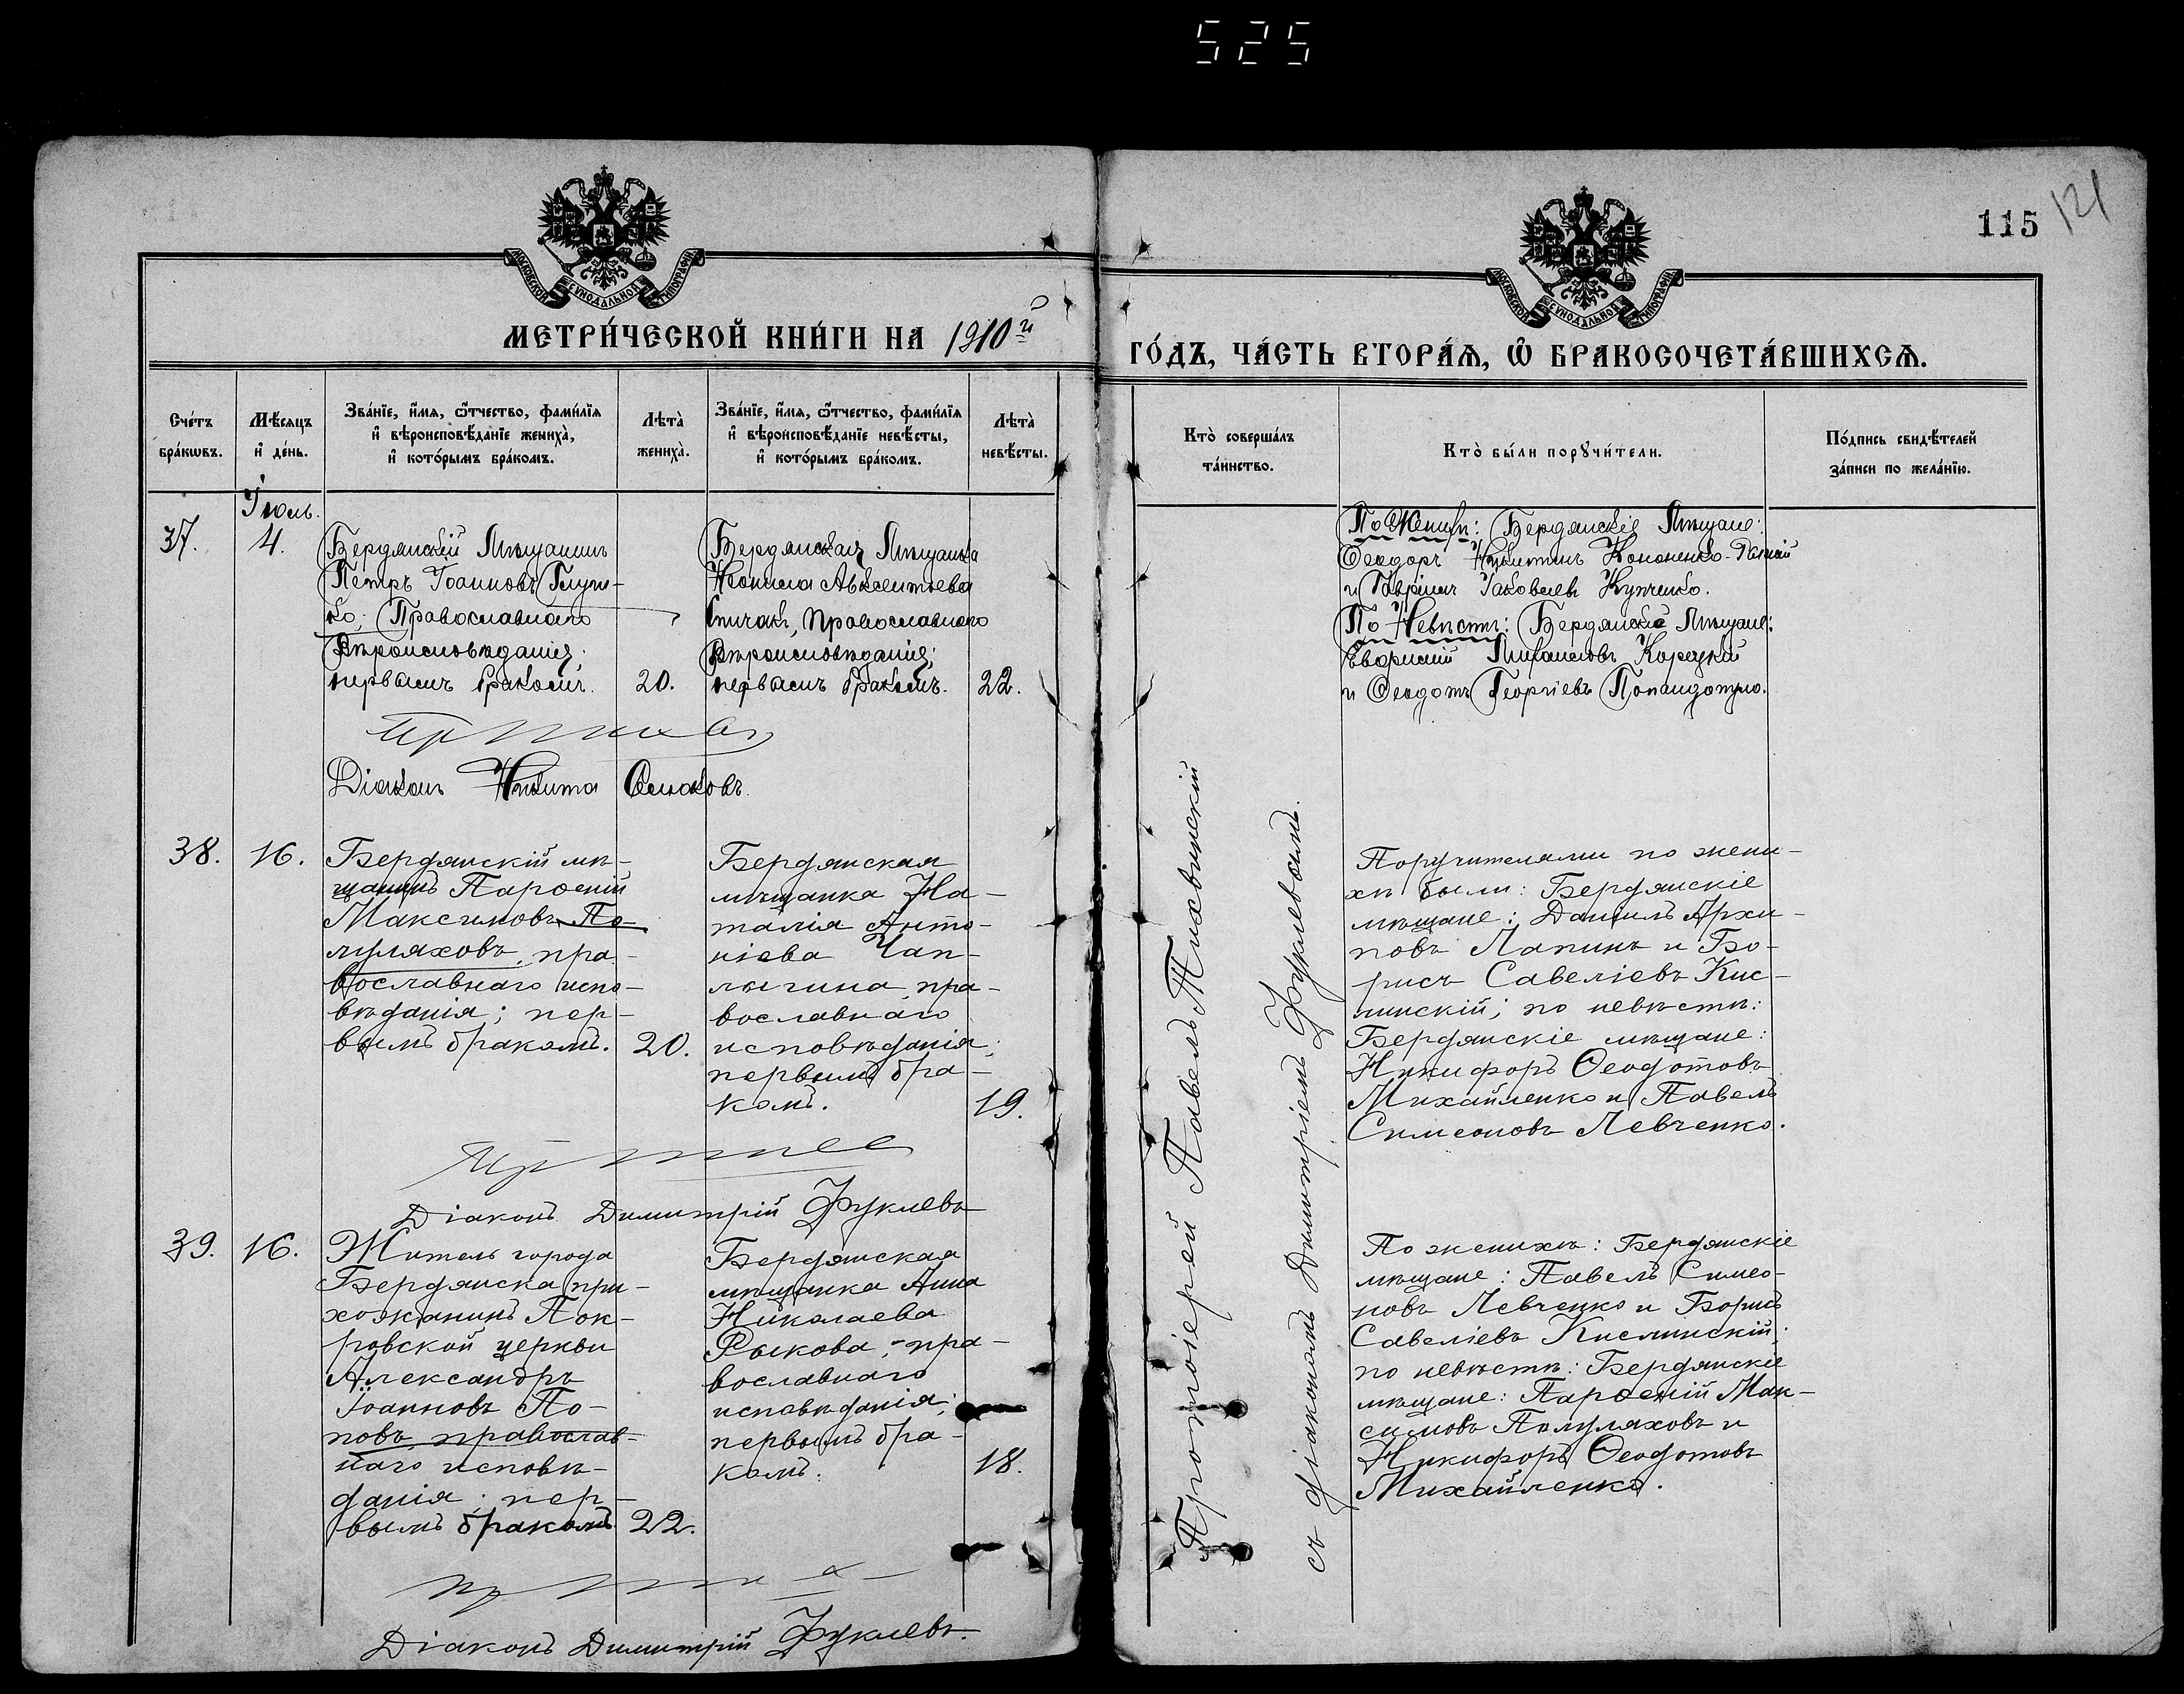 525
115
121
МОСКОВСКОЙ СѴНОДАЛЬНОЙ ТИПОГРАФІИ
МОСКОВСКОЙ СѴНОДАЛЬНОЙ ТИПОГРАФІИ
МЕТРИ́ЧЕСКОЙ КНИ́ГИ НА 1910й
ГО́ДЪ, ЧА́СТЬ ВТОРА́Я, Ѽ БРАКОСОЧЕТА́ВШИХСЯ.
Сче́тъ бра́кѡвъ.
Мѣ́сяцъ и҆ де́нь.
Зва́нїе, и҆́мя, ѻ҆́тчество, фами́лїя
и҆ вѣроисповѣ́данїе жениха̀,
и҆ кото́рымъ бра́комъ.
Лѣта̀ жениха̀.
Зва́нїе, и҆́мя, ѻ҆́тчество, фами́лїя
и҆ вѣроисповѣ́данїе невѣ́сты,
и҆ кото́рымъ бра́комъ.
Лѣта̀ невѣ́сты.
Кто̀ соверша́лъ та́инство.
Кто̀ бы́ли порꙋчи́тели.
По́дпись свидѣ́телей за́писи по жела́нїю.
Іюль.
37.
4.
Бердянскій Мѣщанинъ
Петръ Іоанновъ Глуш-
ко; Православнаго
Вѣроисповѣданія;
первымъ бракомъ.
20.
Бердянская Мѣщанка
Неонила Авксентьева
Спичакъ, Православнаго
Вѣроисповѣданія;
первымъ бракомъ.
22.
Діаконъ Никита
По Женихѣ: Бердянскіе Мѣщане:
Ѳеодоръ Никитинъ Кононенко-
и Гавріилъ Іаковлевъ
По Невѣстѣ: Бердянскіе Мѣщане:
Михаиловъ Корецкій
и Ѳеодотъ Георгіевъ Попандопуло.
38.
16.
Бердянскій мѣ-
щанинъ Парѳеній
Максимовъ По-
луляховъ, пра-
вославнаго испо-
вѣданія; пер-
вымъ бракомъ.
20.
Бердянская
мѣщанка На-
талія Анто-
ніева Чап-
лыгина, пра-
вославнаго
исповѣданія;
первымъ бра-
комъ.
19.
Діаконъ Димитрій Фуклевъ
Поручителями по жени-
хѣ были: Бердянскіе
мѣщане: Даніилъ Архи-
повъ Лапинъ и Бо-
рисъ Савеліевъ Кис-
линскій; по невѣстѣ:
Бердянскіе мѣщане:
Никифоръ Ѳеодотовъ
Михайленко и Павелъ
Симеоновъ Левченко.
39.
16.
Житель города
Бердянска при-
хожанинъ Пок-
ровской церкви
Александръ
Іоанновъ По-
повъ, православ-
наго исповѣ-
данія; пер-
вымъ бракомъ
22.
Бердянская
мѣщанка Анна
Николаева
Рыкова, пра-
вославнаго
исповѣданія;
первымъ бра-
комъ.
18.
Діаконъ Димитрій Фуклевъ.
По женихѣ: Бердянскіе
мѣщане: Павелъ Симео-
новъ Левченко и Борисъ
Савеліевъ Кислинскій;
по невѣстѣ: Бердянскіе
мѣщане: Парѳеній Мак-
симовъ Полуляховъ и
Никифоръ Ѳеодотовъ
Михайленко.
Протоіерей Павелъ Тихвинскій
съ діакономъ Димитріемъ Фуклевымъ.